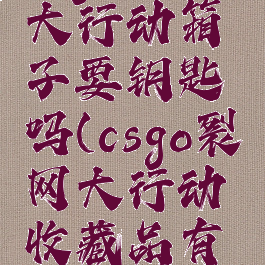 大行动箱
子要钥匙
吗(csgo裂
网大行动
收藏品有